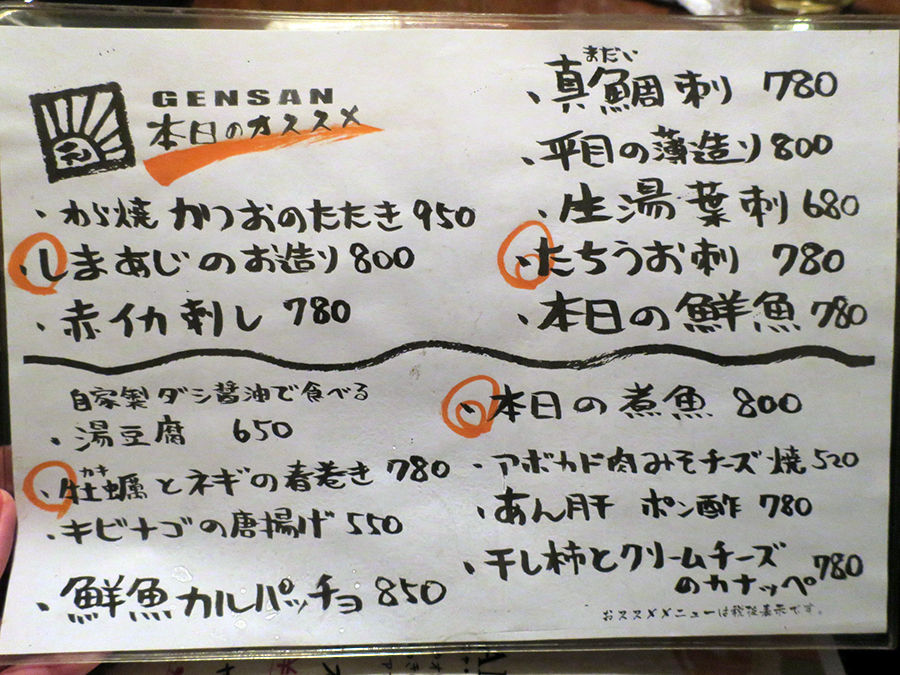 GENSAN
本日のオススメ
・わら焼かつおのたたき 950
・しまあじのお造り 800
・赤イカ刺し 780
まだい
・真鯛刺 780
・平目の薄造り 800
・生湯葉刺 680
・たちうお刺 780
・本日の鮮魚 780
自家製ダシ醤油で食べる
・湯豆腐 650
カキ
・牡蠣とネギの春巻き 780
・キビナゴの唐揚げ 550
・鮮魚カルパッチョ 850
・本日の煮魚 800
・アボカド肉みそチーズ焼 520
・あん肝 ポン酢 780
・干し柿とクリームチーズ
のカナッペ 780
おススメメニューは税抜表示です。